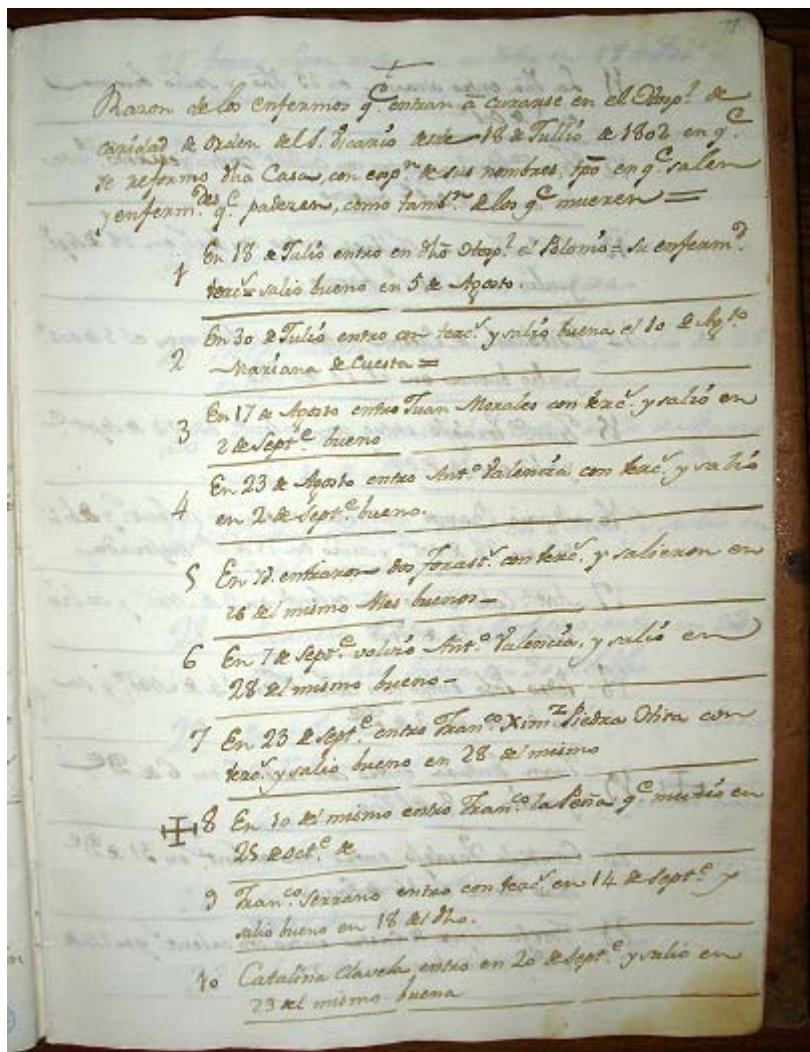 Razon de los enfermos q.e entran à curarse en el Hosp.l de
caridad de orden del S. Vicario desde 18 de Jullio de 1802 en q.e
se reformo dha Casa, con exp.n de sus nombres, tpō en q.e salen
y enferm.des q.e padezen, como tamb.n de los q.e mueren =
1 En 18 de Julio entro en dhō Hosp.l el Polonio = su enferm.d
terc.s salio bueno en 5 de Agosto.
2 En 30 de Julio entro con terc.s y salió buena el 10 de Ag.to
Mariana de Cuesta =
3 En 17 de Agosto entro Juan Morales con terc.s y salió en
2 de Sept.e bueno
4 En 23 de Agosto entro Ant.o Valencia con terc.s y salió
en 2 de Sept.e bueno.
5 En entraron dos forast.s con terc.s y salieron en
28 del mismo Mes buenos =
6 En 7 de Sept.e volvió Ant.o Valencia, y salió en
28 del mismo bueno -
7 En 23 de Sept.e entro Fran.co Xim.z Piedra Ohita con
terc.s y salio bueno en 28 del mismo
8 En 10 del mismo entro Fran.co la Peña q.e murió en
25 de oct.e de
9 Fran.co Serrano entro con terc.s en 14 de Sept.e y
salio bueno en 18 del dho.
10 Catalina Clavela entro en 20 de Sept.e y salio en
23 del mismo buena